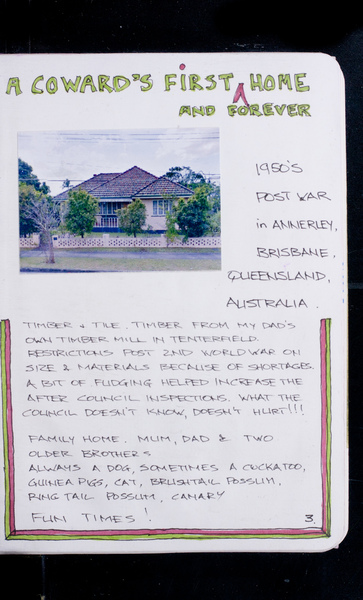 A COWARD'S FIRST HOME
AND FOREVER
1950'S
POST WAR
in ANNERLEY,
BRISBANE,
QUEENSLAND,
AUSTRALIA.
TIMBER & TILE. TIMBER FROM MY DAD'S
OWN TIMBER MILL IN TENTERFIELD.
RESTRICTIONS POST 2ND WORLD WAR ON
SIZE & MATERIALS BECAUSE OF SHORTAGES.
A BIT OF FUDGING HELPED INCREASE THE
AFTER COUNCIL INSPECTIONS. WHAT THE
COUNCIL DOESN'T KNOW, DOESN'T HURT!!!
FAMILY HOME. MUM, DAD & TWO
OLDER BROTHERS
ALWAYS A DOG, SOMETIMES A COCKATOO,
GUINEA PIGS, CAT, BRUSHTAIL POSSUM,
RING TAIL POSSUM, CANARY
FUN TIMES!
3.